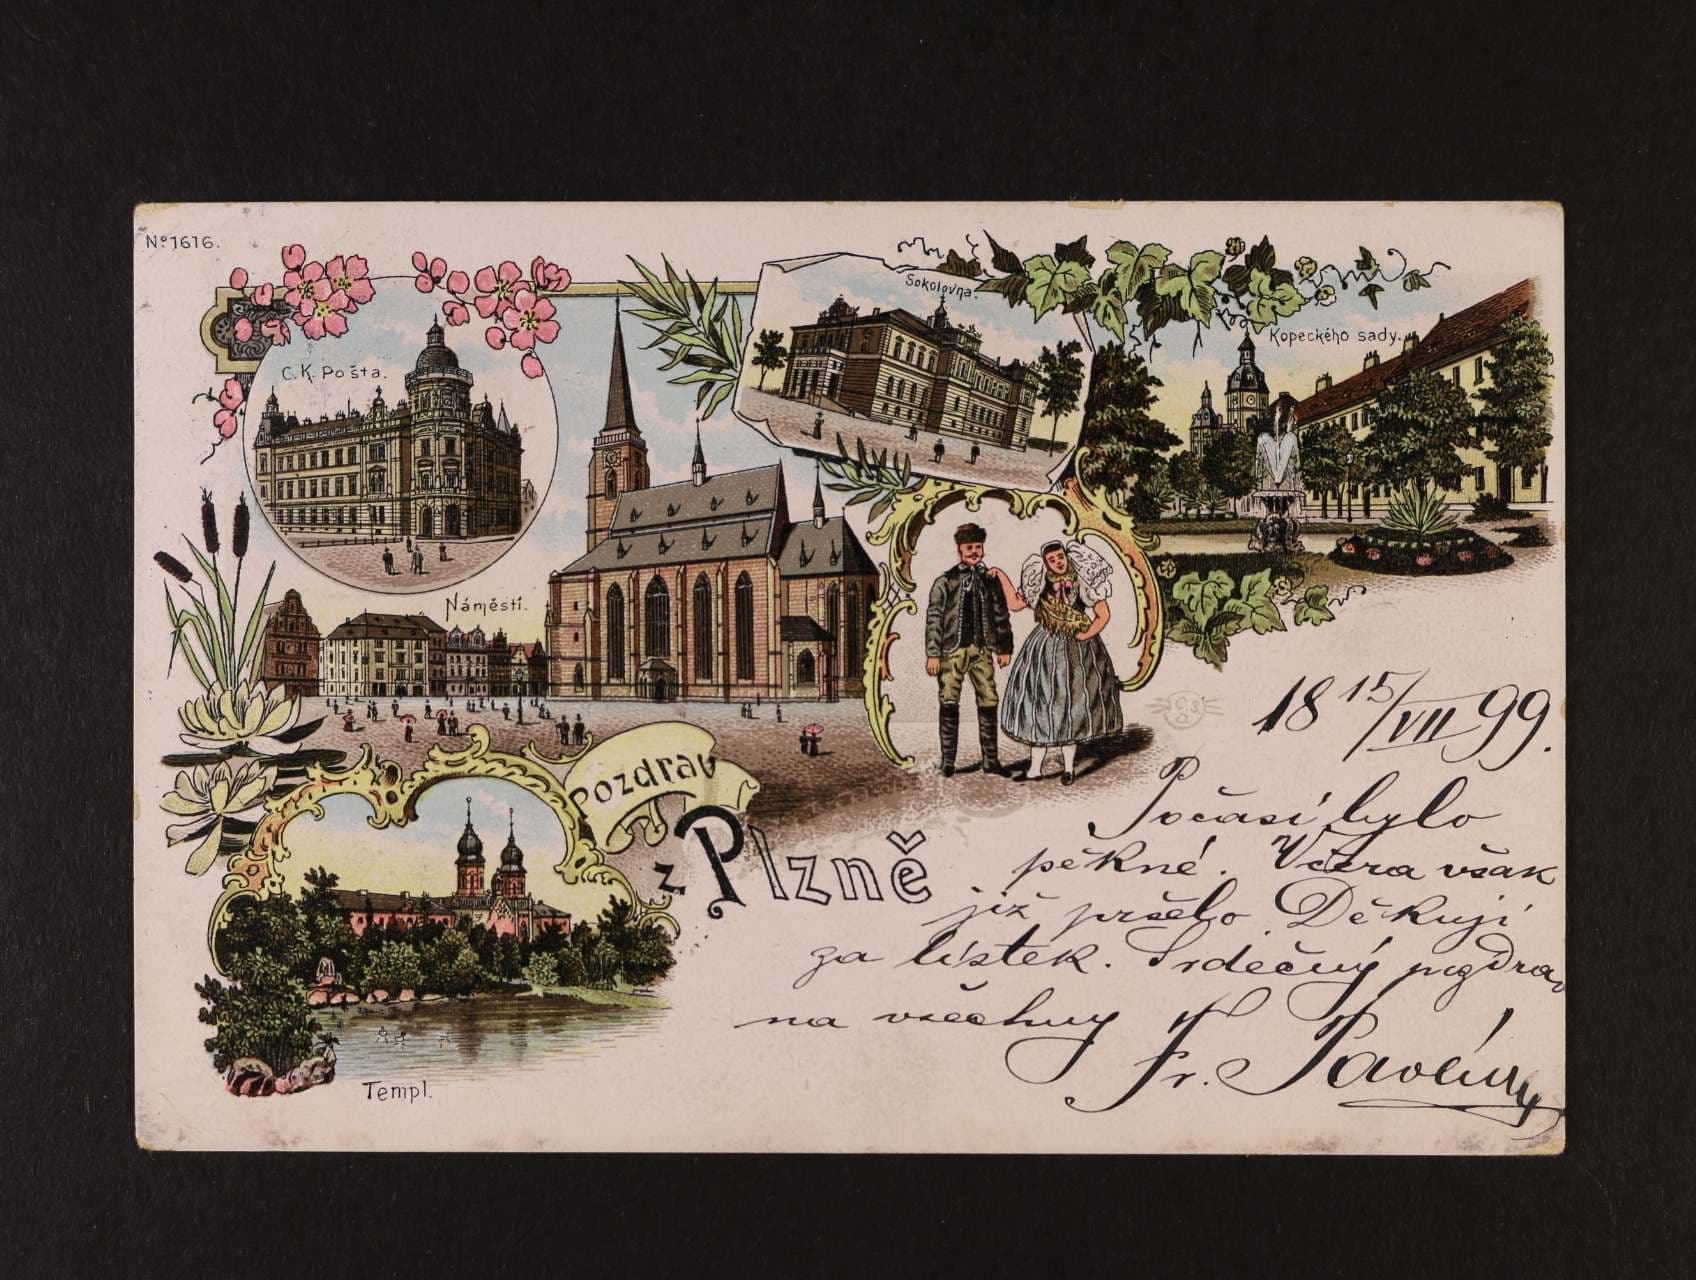 Nº 1616.
C. K. Pošta.
Sokolovna.
Kopeckého sady.
Náměstí.
Pozdrav
z Plzně
Templ.
18 15/VII 99.
Počasí bylo
pěkné. Včera však
již pršelo. Děkuji
za lístek. Srdečný pozdrav
na všechny Fr.